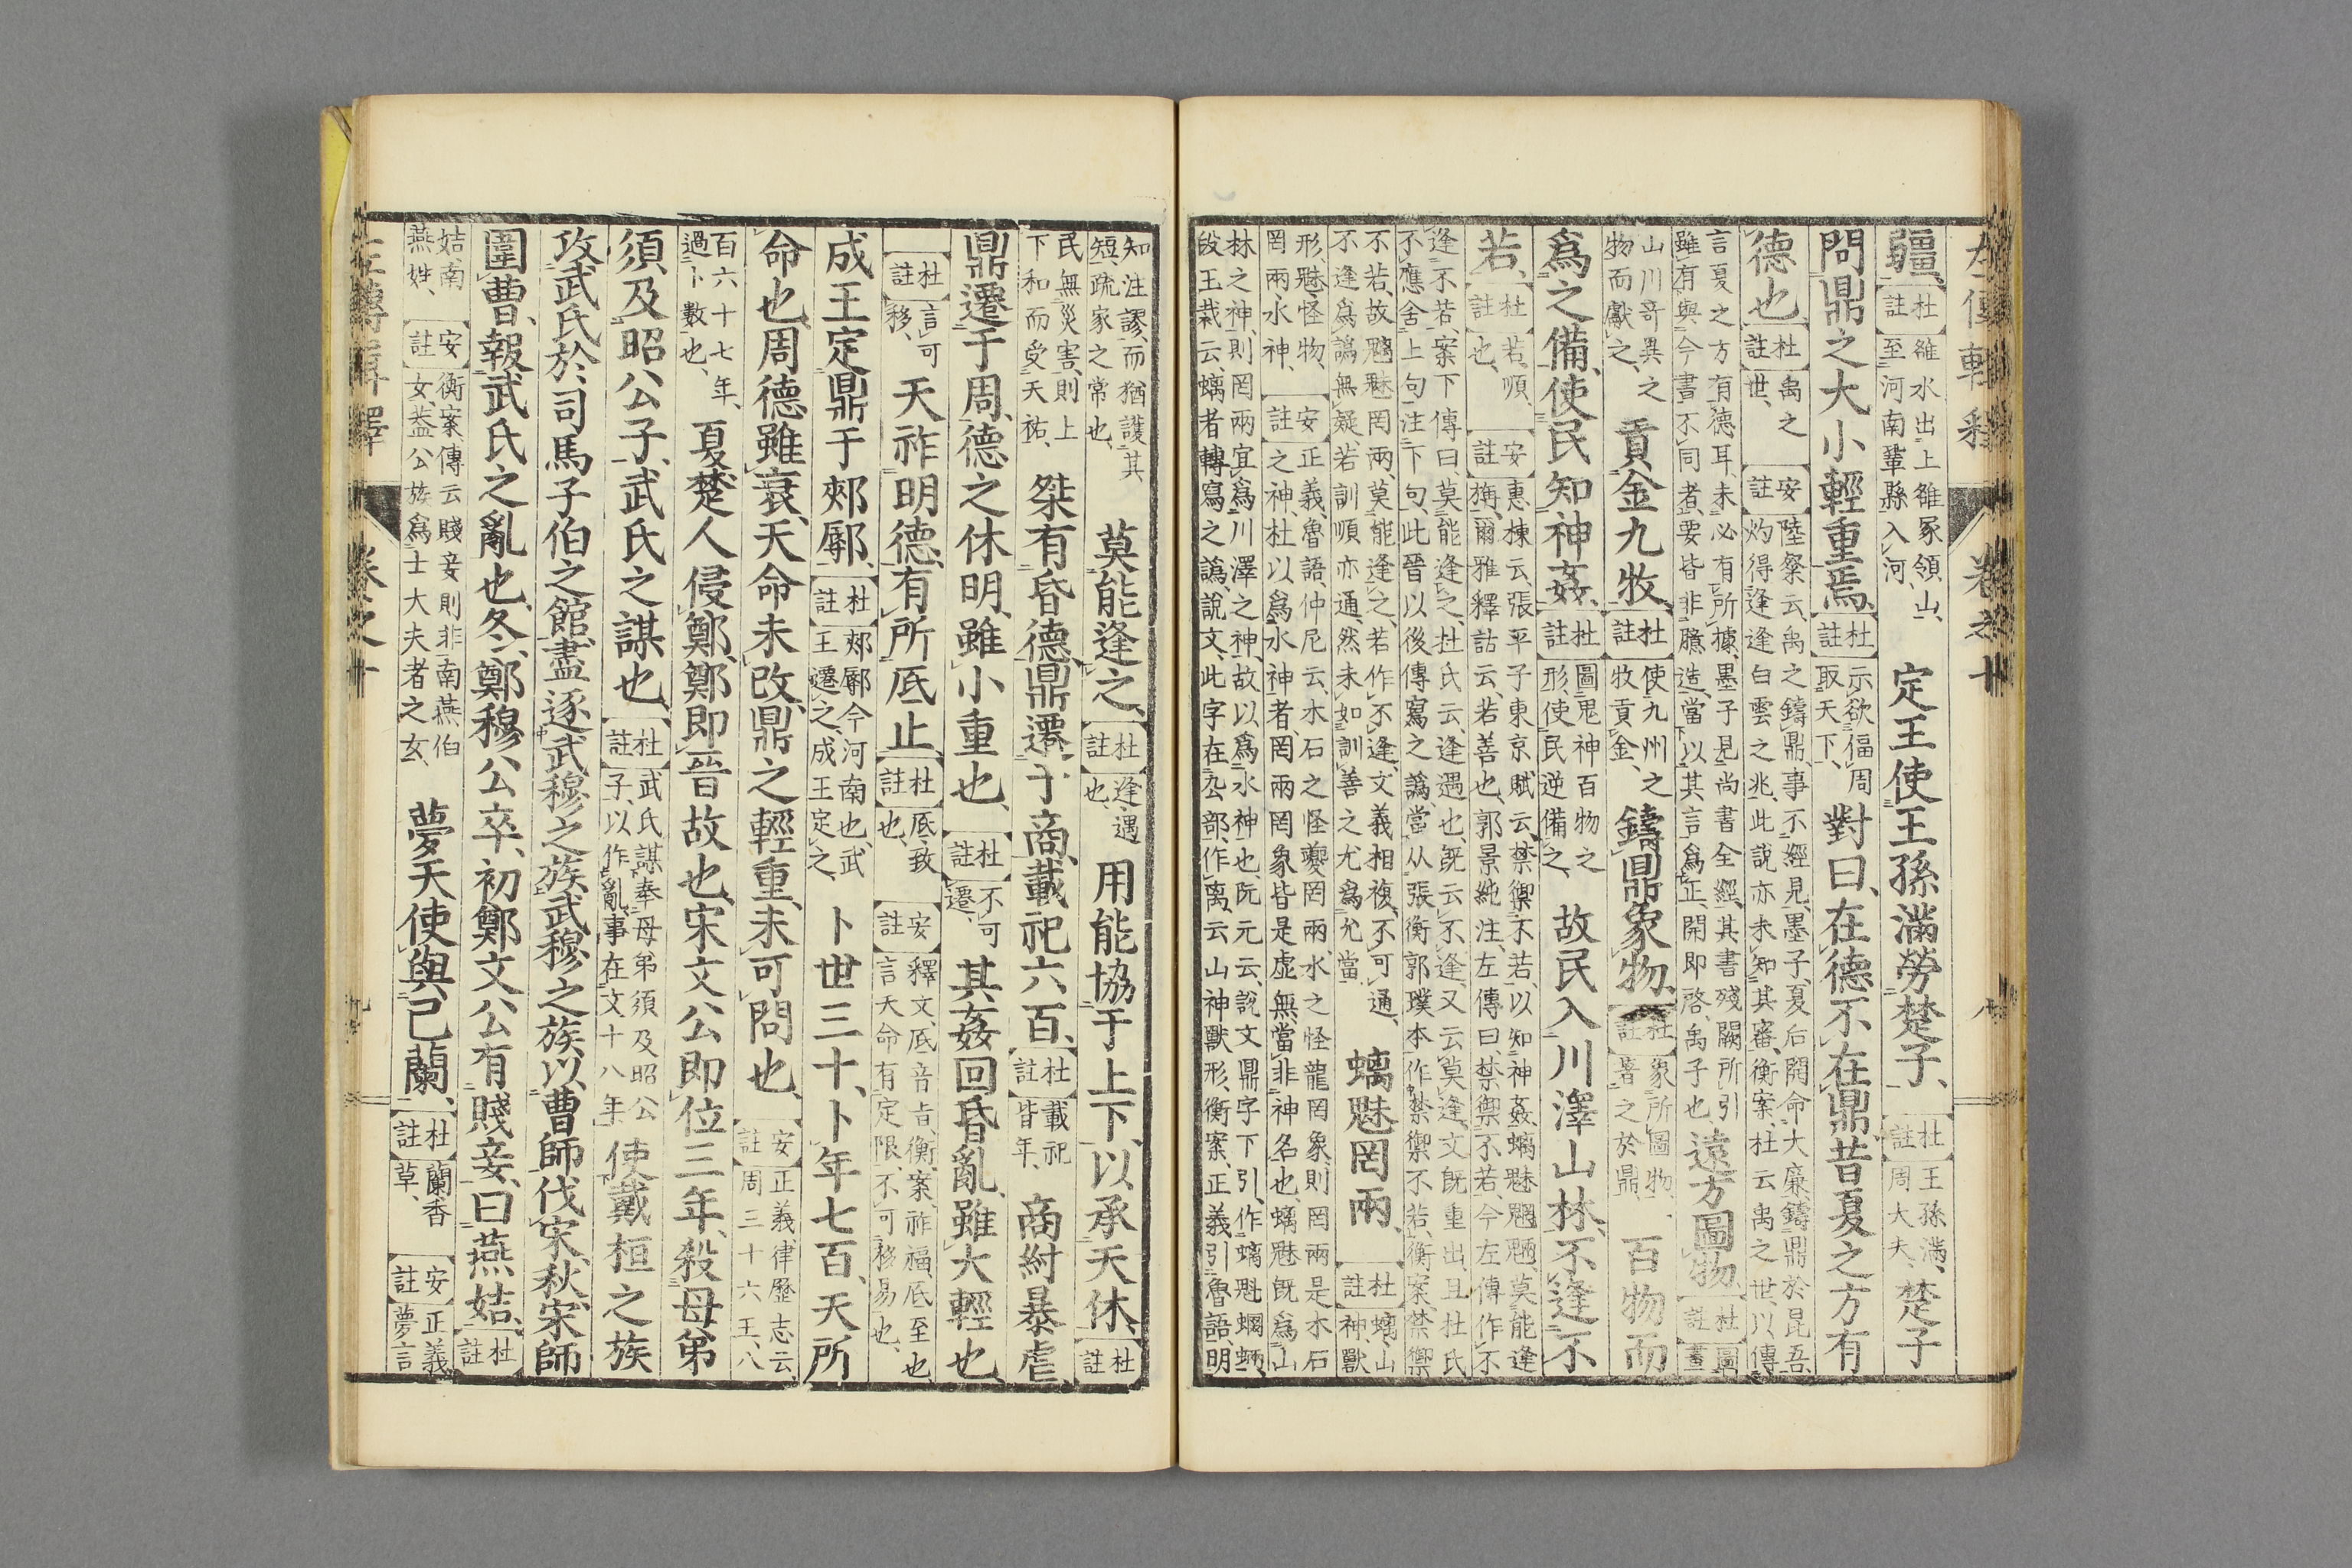 疆、杜註雒水出上雒冢領山、至河南鞏縣入河、定王使王孫滿勞楚子、杜註王孫滿、周大夫、楚子
問鼎之大小輕重焉、杜註示欲偪周取天下、對曰、在德不在鼎、昔夏之方有
德也、杜註禹之世、安註陸粲云、禹之鑄鼎、事不經見、墨子、夏后開命大廉、鑄鼎於昆吾、灼得逢逢白雲之兆、此說亦未知其審、衡案、杜云禹之世、以傳
言夏之方有德耳、未必有所據、墨子見尚書全經、其書殘闕、所引雖有與今書不同者、要皆非臆造、當以其言爲正、開卽啓、禹子也、遠方圖物、杜註圖畫
山川奇異之物而獻之、貢金九牧、杜註使九州之牧貢金、鑄鼎象物、杜註象所圖物、著之於鼎、百物而
爲之備、使民知神姦、杜註圖鬼神百物之形、使民逆備之、故民入川澤山林、不逢不
若、杜註若、順也、安註惠棟云、張平子東京賦云、禁禦不若、以知神姦、螭魅魍魎、莫能逢旃、爾雅釋詁云、若、善也、郭景純注、左傳曰禁禦不若、今左傳作不
逢不若、案下傳曰、莫能逢之、杜氏云、逢遇也、旣云不逢、又云莫逢、文旣重出、且杜氏不應舍上句注下句、此晉以後傳寫之譌、當从張衡郭璞本作禁禦不若、衡案、禁禦
不若、故魑魅罔兩、莫能逢之、若作不逢、文義相複、不可通、不逢爲譌無疑、若訓順亦通、然未如訓善之尤爲允當、螭魅罔兩、杜註螭、山神、獸
形、魅、怪物、罔兩、水神、安註正義、魯語、仲尼云、木石之怪夔罔兩、水之怪龍罔象、則罔兩是木石之神、杜以爲水神者、罔兩罔象皆是虛無、當非神名也、螭魅旣爲山
林之神、則罔兩宜爲川澤之神、故以爲水神也、阮元云、說文鼎字下引、作螭魅蝄蜽、段玉裁云、螭者轉寫之譌、說文、此字在厹部、作离、云山神獸形、衡案、正義引魯語、明
知注謬、而猶護其短、疏家之常也、莫能逢之、杜註逢、遇也、用能協于上下、以承天休、杜註
民無災害、則上下和而受天祐、桀有昏德、鼎遷于商、載祀六百、杜註載祀皆年、商紂暴虐、
鼎遷于周、德之休明、雖小重也、杜註不可遷、其姦回昏亂、雖大輕也、
杜註言可移、天祚明德、有所厎止、杜註厎、致也、安註釋文、厎音旨、衡案、祚福、厎至也、言天命有定限、不可移易也、
成王定鼎于郟鄏、杜註郟鄏今河南也、武王遷之、成王定之、卜世三十、卜年七百、天所
命也、周德雖衰、天命未改、鼎之輕重、未可問也、安註正義律歷志云、周三十六王、八
百六十七年、過卜數也、夏楚人侵鄭、鄭卽晉故也、宋文公卽位三年、殺母弟
須及昭公子、武氏之謀也、杜註武氏謀奉母弟須及昭公子、以作亂、事在文十八年、使戴桓之族
攻武氏於司馬子伯之館、盡逐武穆之族、武穆之族、以曹師伐宋、秋、宋師
圍曹、報武氏之亂也、冬、鄭穆公卒、初鄭文公有賤妾、曰燕姞、杜註
姞、南燕姓、安註衡案、傳云賤妾則非南燕伯女、蓋公族爲士大夫者之女、夢天使與己蘭、杜註蘭香草、安註正義夢言